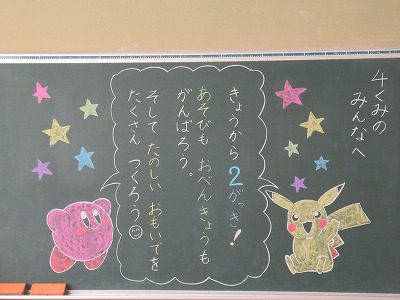 4くみの
みんなへ
きょうから2がっき!
あそびも おべんきょうも
がんばろう。
そして たのしい おもいでを
たくさん つくろう